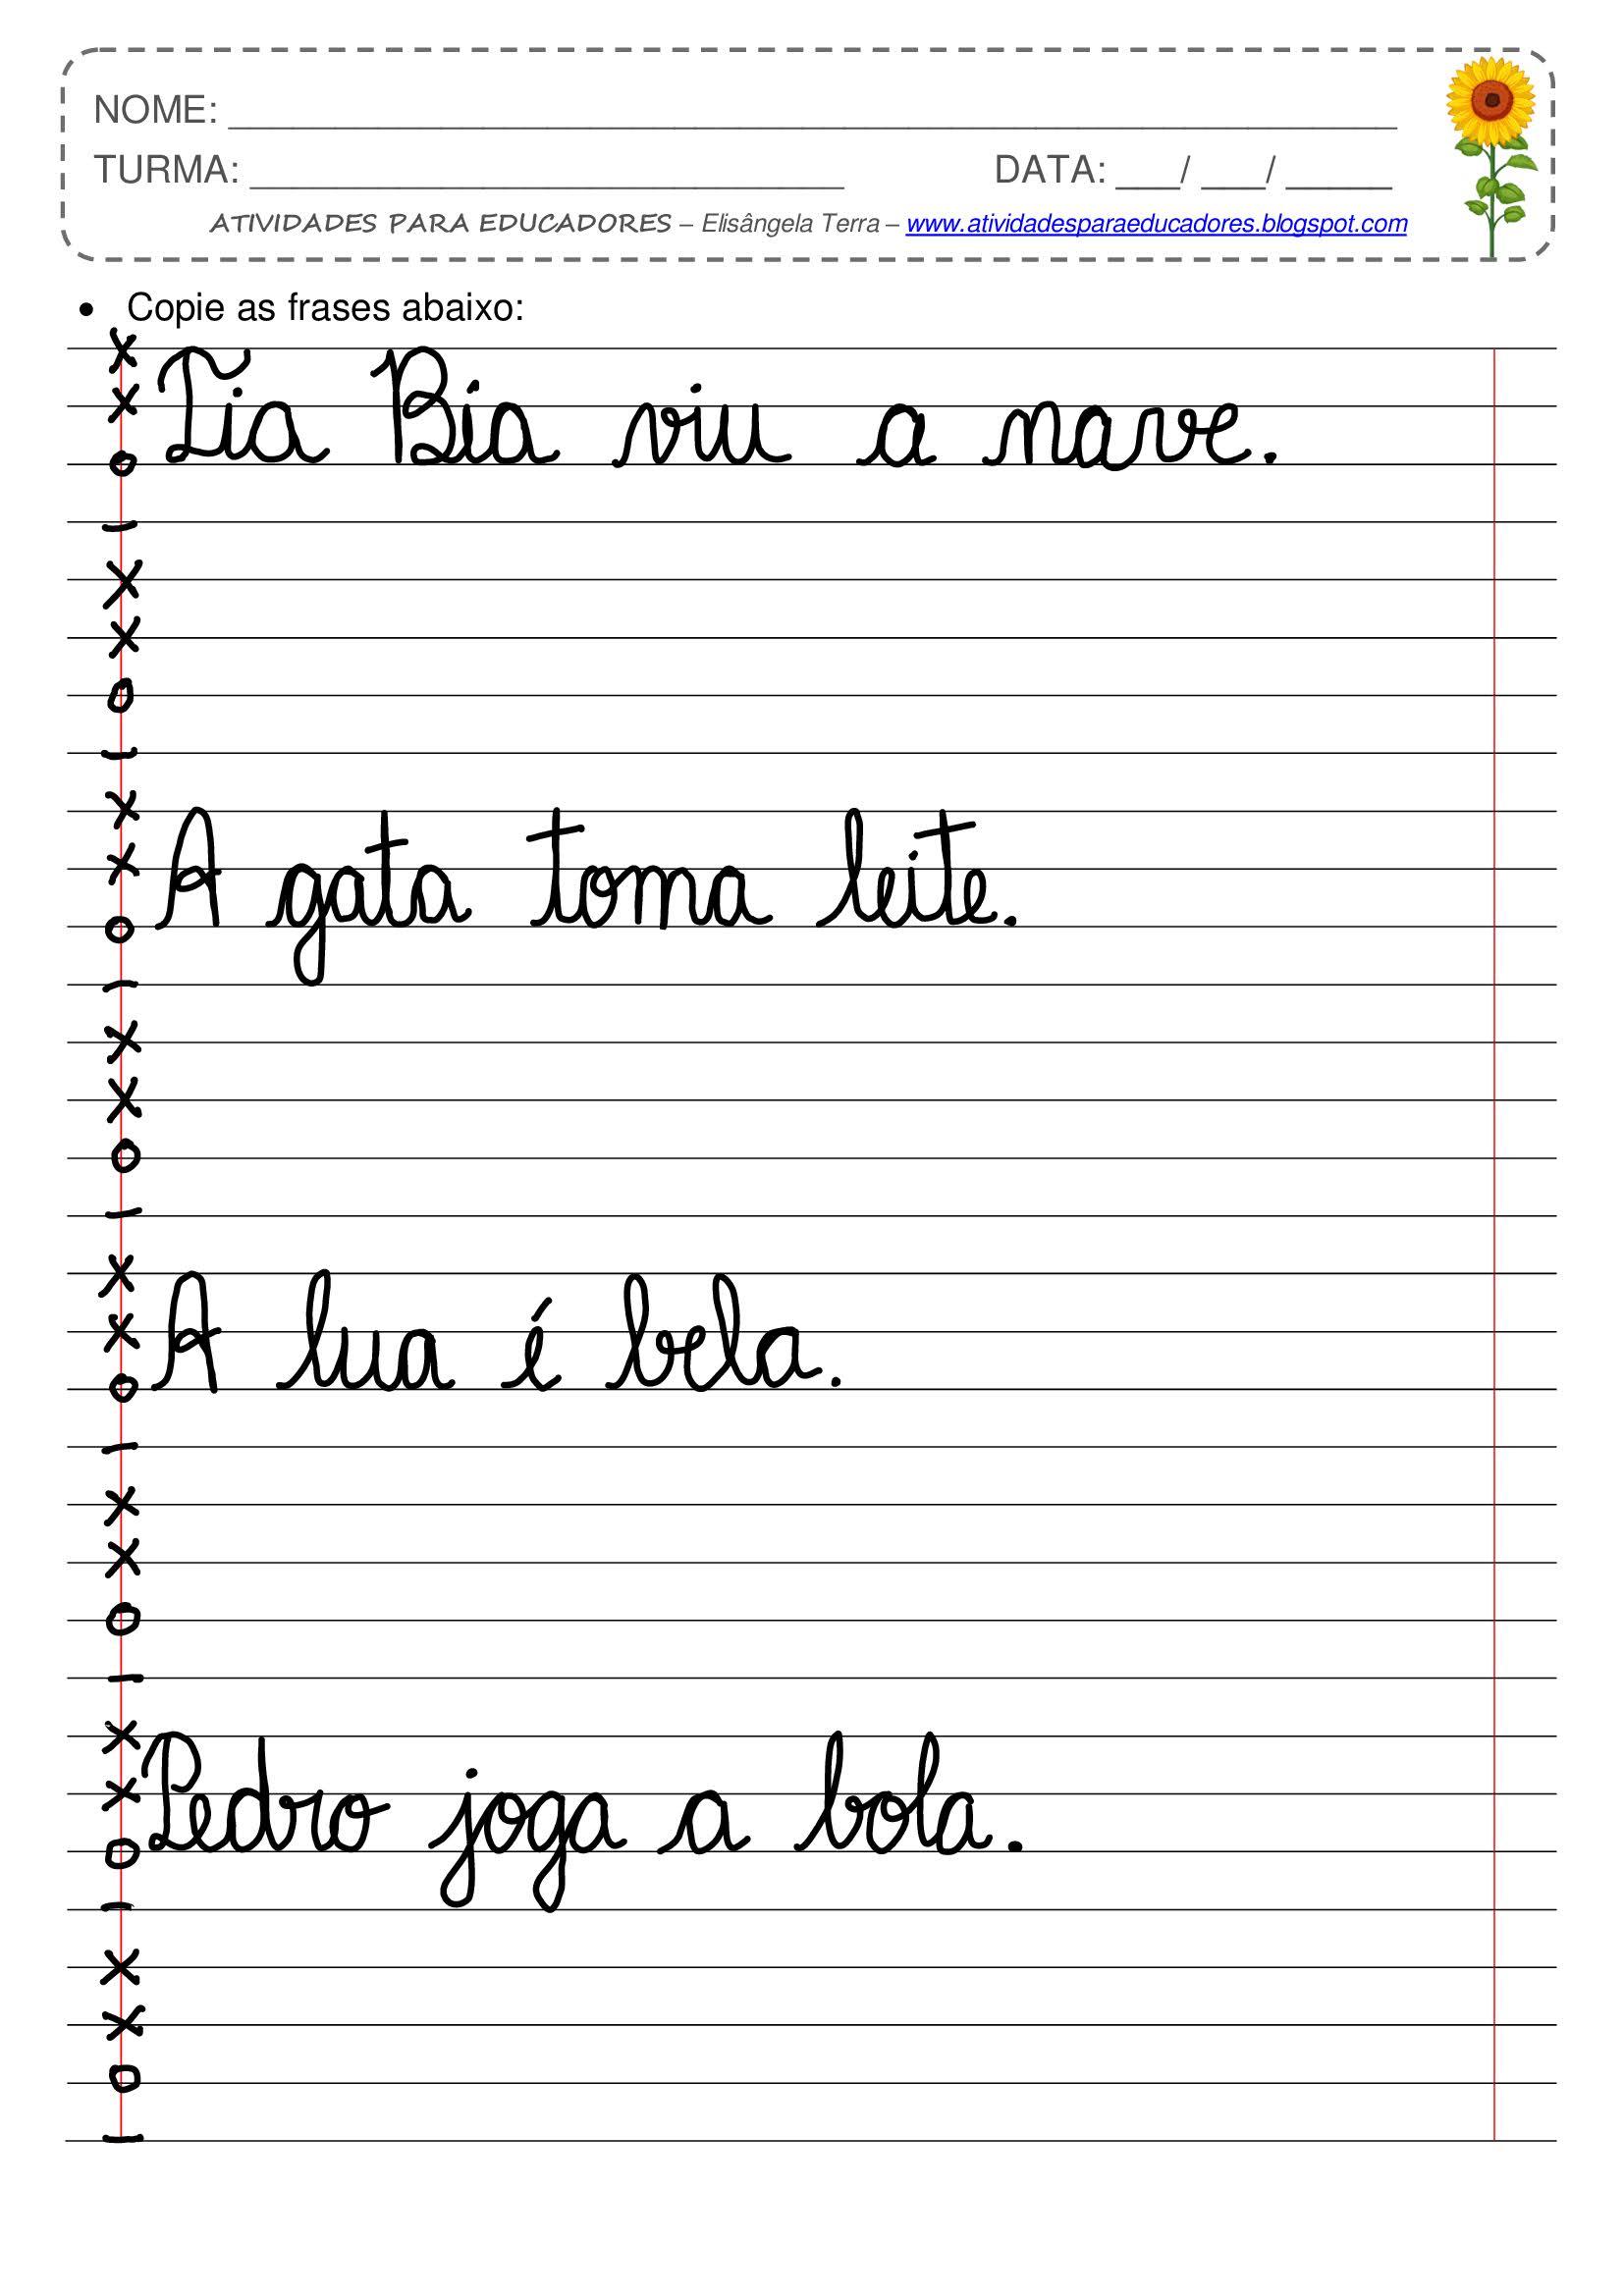 NOME: ______________________________________________________
TURMA: ____________________________ DATA: ___/ ___/ _____
ATIVIDADES PARA EDUCADORES – Elisângela Terra – www.atividadesparaeducadores.blogspot.com
• Copie as frases abaixo:
x
x Tia Bia viu a nave.
o
-
x
x
o
-
x
x A gata toma leite.
o
-
x
x
o
-
x
x A lua é bela.
o
-
x
x
o
-
x
x Pedro joga a bola.
o
-
x
x
o
-